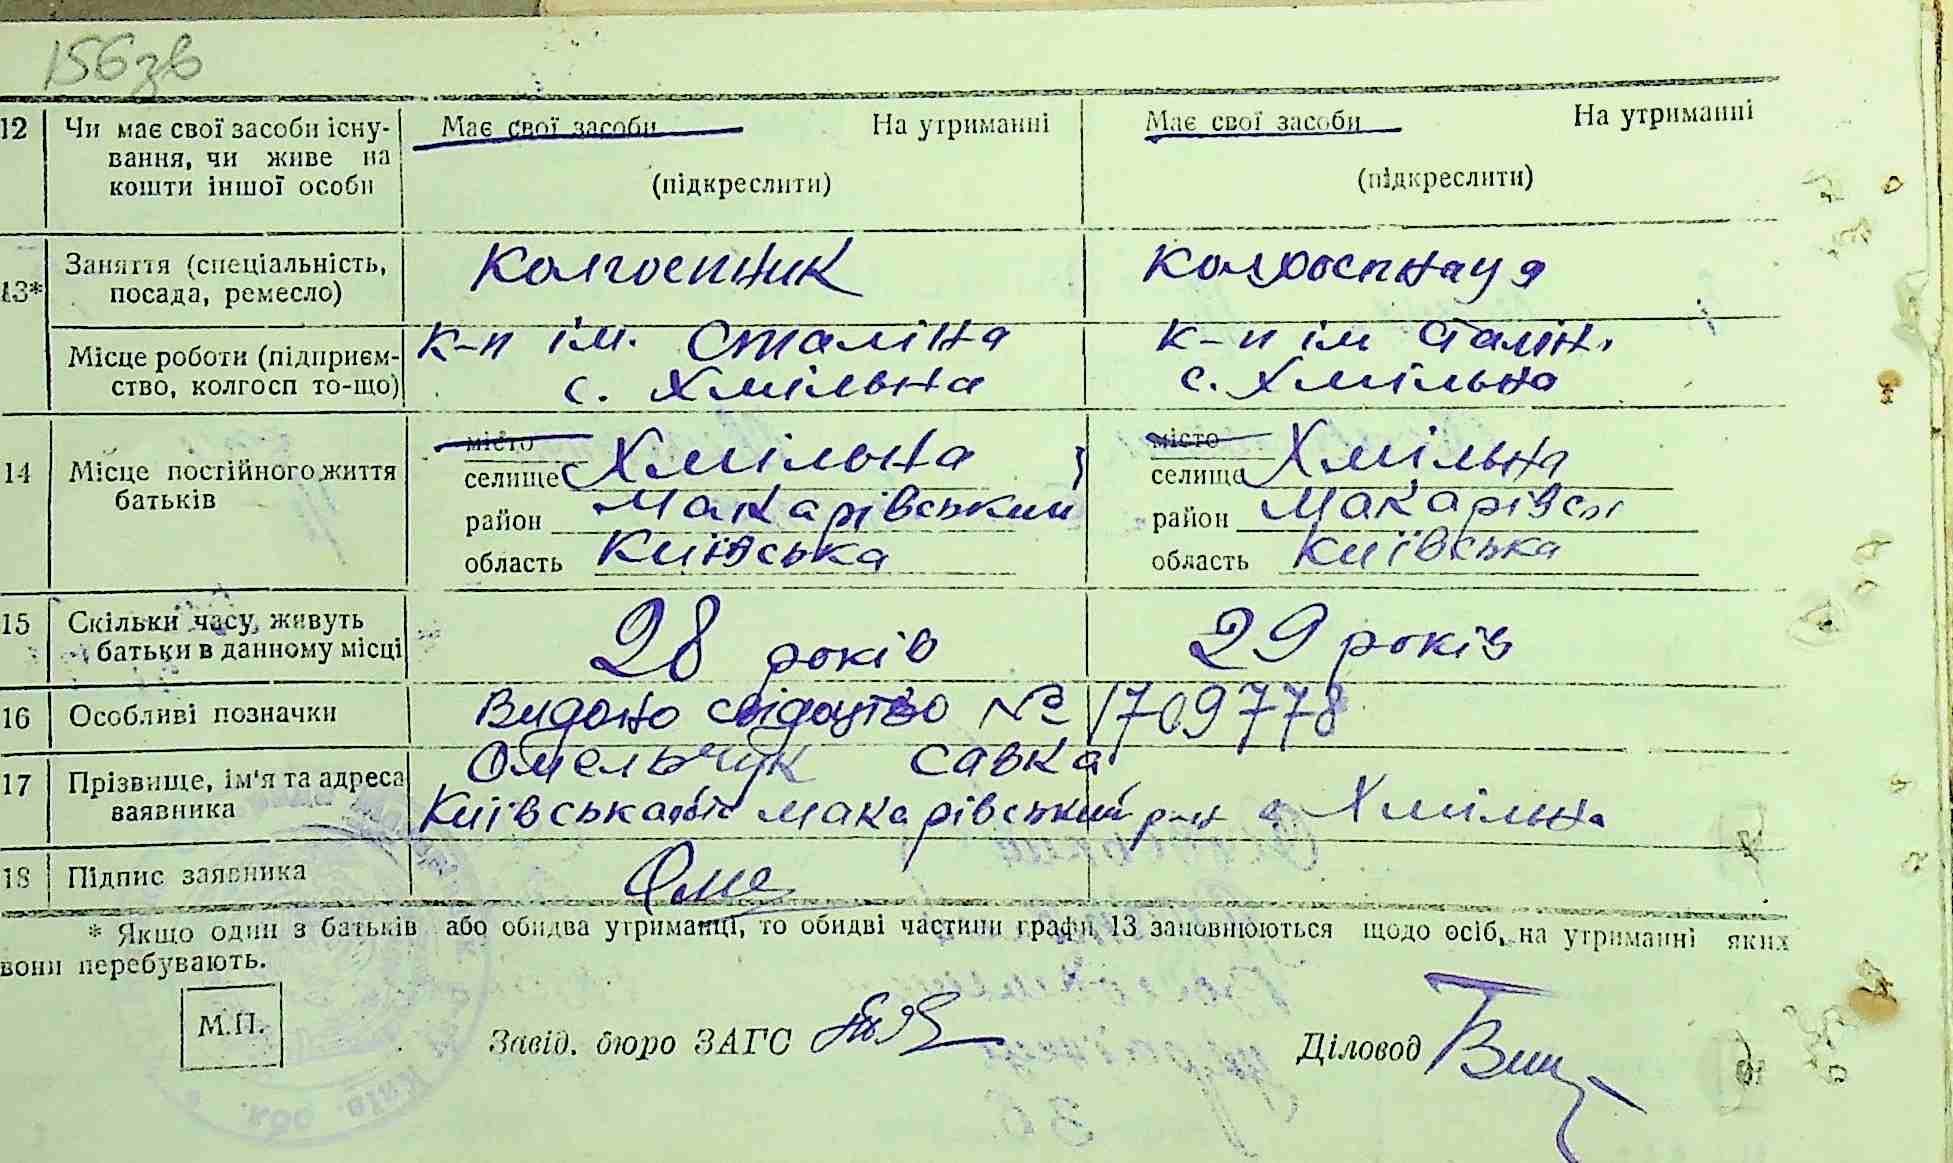 156зв
12 Чи має свої засоби існу-вання, чи живе на кошти іншої особи
Має свої засоби На утриманні (підкреслити)
Має свої засоби На утриманні (підкреслити)
13* Заняття (спеціальність, посада, ремесло)
Колгоспник
Колгоспниця
Місце роботи (підприєм-ство, колгосп то-що)
к-п ім. Сталіна
с. Хмільна
к-п ім Сталін.
с. Хмільна
14 Місце постійного життя батьків
місто
селище с Хмільна
район Макарівський
область Київська
місто
селище с Хмільна
район Макарівсь
область Київська
15 Скільки часу живуть батьки в данному місці
28 років
29 років
16 Особливі позначки
Видано свідоцтво № 1709778
17 Прізвище, ім'я та адреса заявника
Омельчук Савка
Київська обл Макарівський р-н с Хмільна
18 Підпис заявника
Оме
* Якщо один з батьків або обидва утриманці, то обидві частини графи 13 заповнюються щодо осіб, на утриманні яких
вони перебувають.
М.П.
Завід. бюро ЗАГС
Діловод